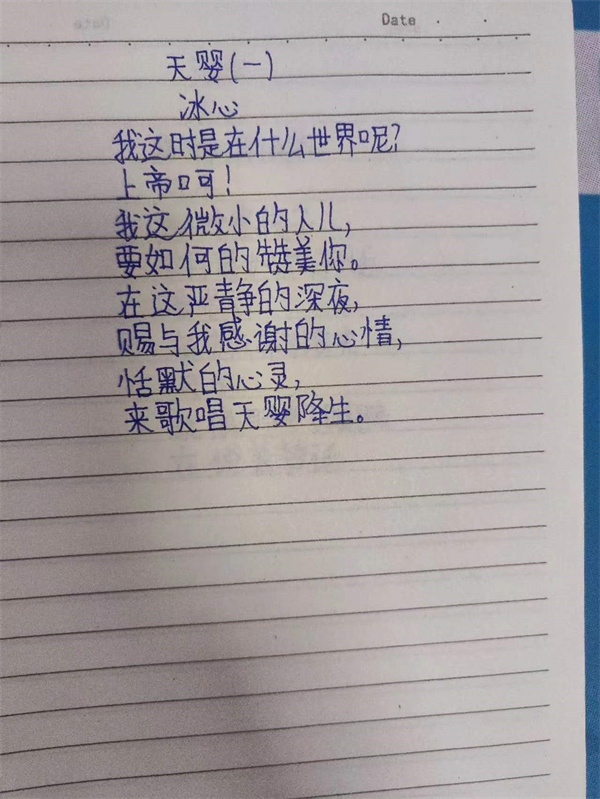 Date
天婴(一)
冰心
我这时是在什么世界呢?
上帝呵!
我这微小的人儿,
要如何的赞美你。
在这严静的深夜,
赐与我感谢的心情,
恬默的心灵,
来歌唱天婴降生。